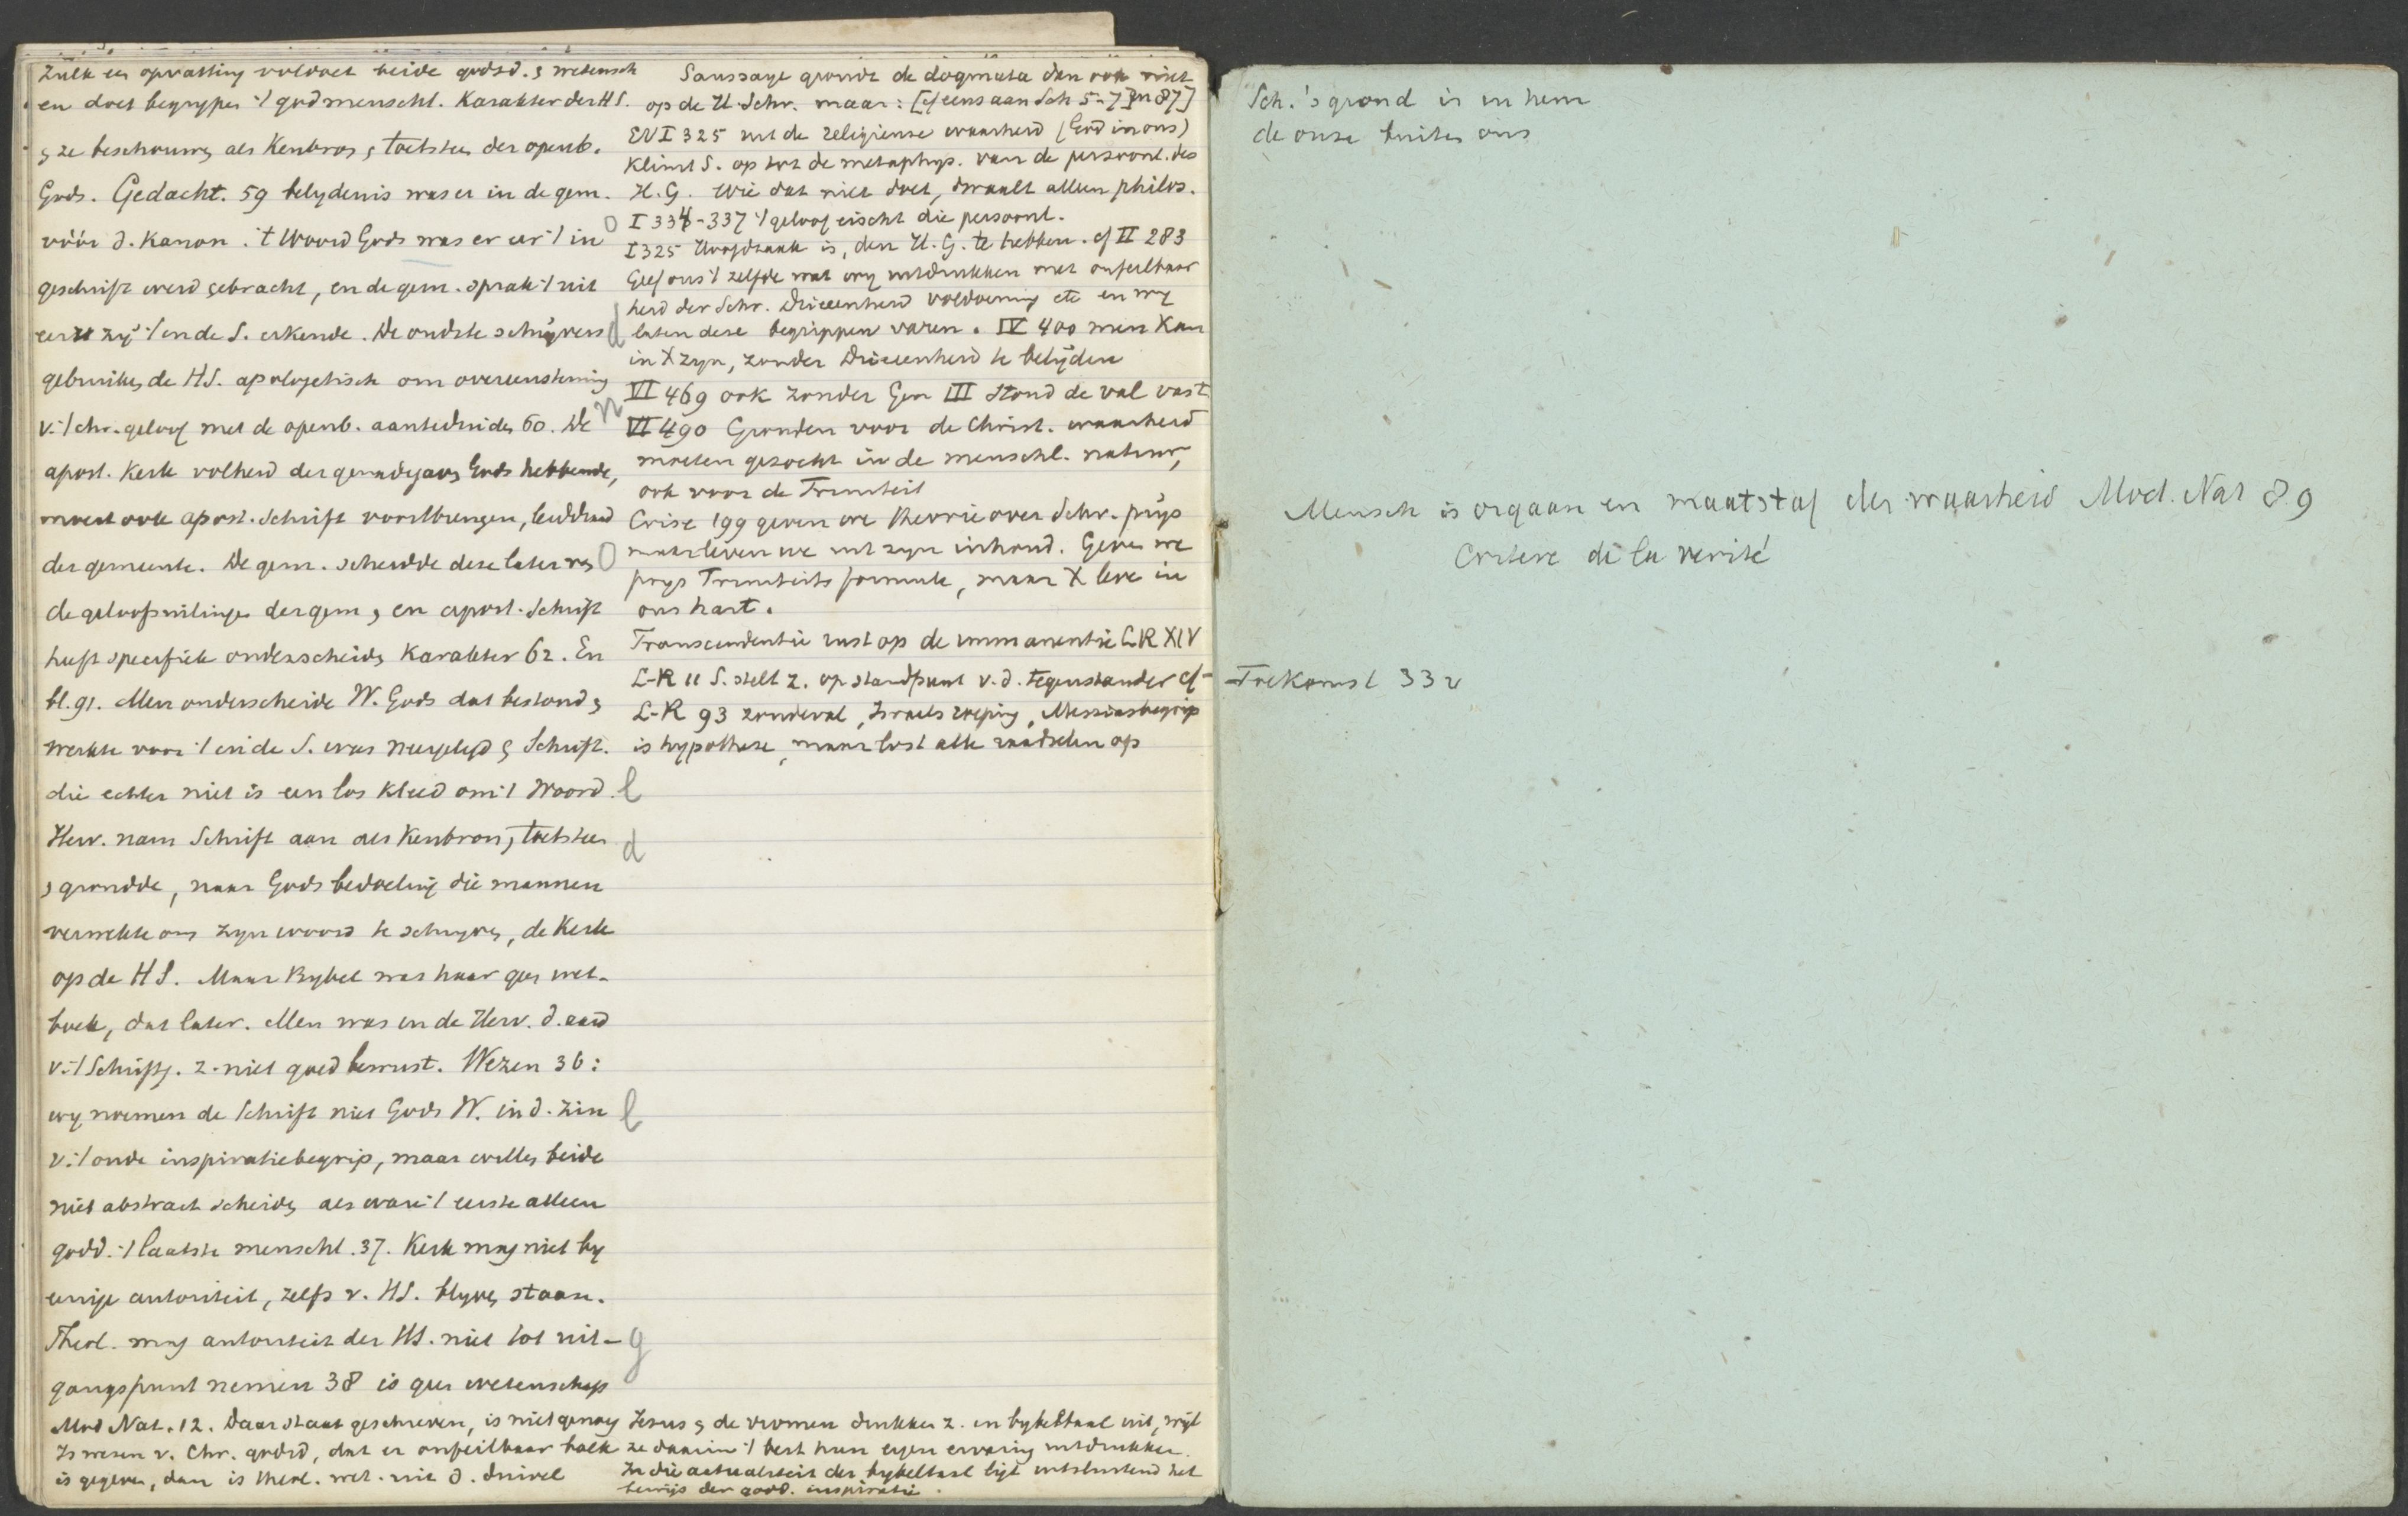 Zulk een opvatting voldoet beide godsd. & wetensch
en doet begrypen 't godmenschl. Karakter der HS.
& ze beschouwen als Kenbron & toetssteen der openb.
Gods. Gedacht. 59 belydenis was er in de gem.
vóór d. Kanon. 't Woord Gods was er eer 't in
geschrift werd gebracht, en de gem. sprak 't uit
eer zy 't in de S. erkende. De oudste schryvers
gebruiken de HS. apologetisch om overeenstemming
v. 't chr. geloof met de openb. aanteduiden 60. De
apost. Kerk volheid der genadegaven Gods hebbende,
moest ook apost. Schrift voortbrengen, leiddraad
der gemeente. De gem. scheidde deze later van
de geloofsuitingen der gem, en apost. Schrift
heeft specifiek onderscheiden Karakter 62. En
bl. 91. Men onderscheide W. Gods dat bestond &
werkte voor 't in de S. was neergelegd & Schrift.
die echter niet is een los kleed om 't Woord.
Herv. nam Schrift aan als Kenbron, toetssteen
& grondde, naar Gods bedoeling die mannen
verwekte om zyn woord te schryven, de Kerk
op de HS. Maar Bybel was haar geen wet-
boek, dat later. Men was in de Herv. d. aard
v. 't Schriftg. z. niet goed bewust. Wezen 36:
wy noemen de Schrift niet Gods W. in d. zin
v. 't oude inspiratiebegrip, maar willen beide
niet abstract scheiden als ware 't eerste alleen
godd. 't laatste menschl. 37. Kerk mag niet by
eenige autoriteit, zelfs v. HS. blyven staan.
Theol. mag autoriteit der HS. niet tot uit-
gangspunt nemen 38 is geen wetenschap
Mod Nat. 12. Daar staat geschreven, is niet genoeg
Is wezen v. Chr. godsd, dat er onfeilbaar boek
is gegeven, dan is theol. wet. uit d. duivel
Saussaye grondt de dogmata dan ook niet
op de H. Schr. maar: [cf eens aan Sch 5-7] en 87]
EV I 325 uit de religieuse waarheid (God in ons)
Klimt S. op tot de metaphys. van de persoonl. des
H. G. Wie dat niet doet, dwaalt alleen philos.
I 334-337 't geloof eischt die persoonl.
I 325 Hoofdzaak is, den H. G. te hebben. cf II 283
Geef ons 't zelfde wat wy uitdrukken met onfeilbaar
heid der Schr. Drieeenheid voldoening etc en wy
laten deze begrippen varen. IV 400 men Kan
in X zyn, zonder Drieeenheid te belyden
VI 469 ook zonder Gen III stond de val vast
VI 490 Gronden voor de Christ. waarheid
moeten gezocht in de menschl. natuur,
ook voor de Triniteit
Crise 199 geven we theorie over Schr. prys
maar leven we uit zyn inhoud. Geven we
prys Triniteitsformule, maar X leve in
ons hart.
Transcendentie rust op de immanentie L-R XIV
L-R 11 S. stelt z. op standpunt v. d. tegenstander cf
L-R 93 zondeval, Israels roeping, Messiasbegrip
is hypothese, maar lost alle raadselen op
Jesus & de vromen drukken z. in bybeltaal uit, wyl
ze daarin 't best hun eigen ervaring uitdrukken.
In die actualiteit der bybeltaal ligt uitsluitend het
bewijs der godd. inspiratie.
Sch.'s grond is in hem
de onze buiten ons
Mensch is orgaan en maatstaf der waarheid Mod. Nat 89
Critere de la verité
Toekomst 33v